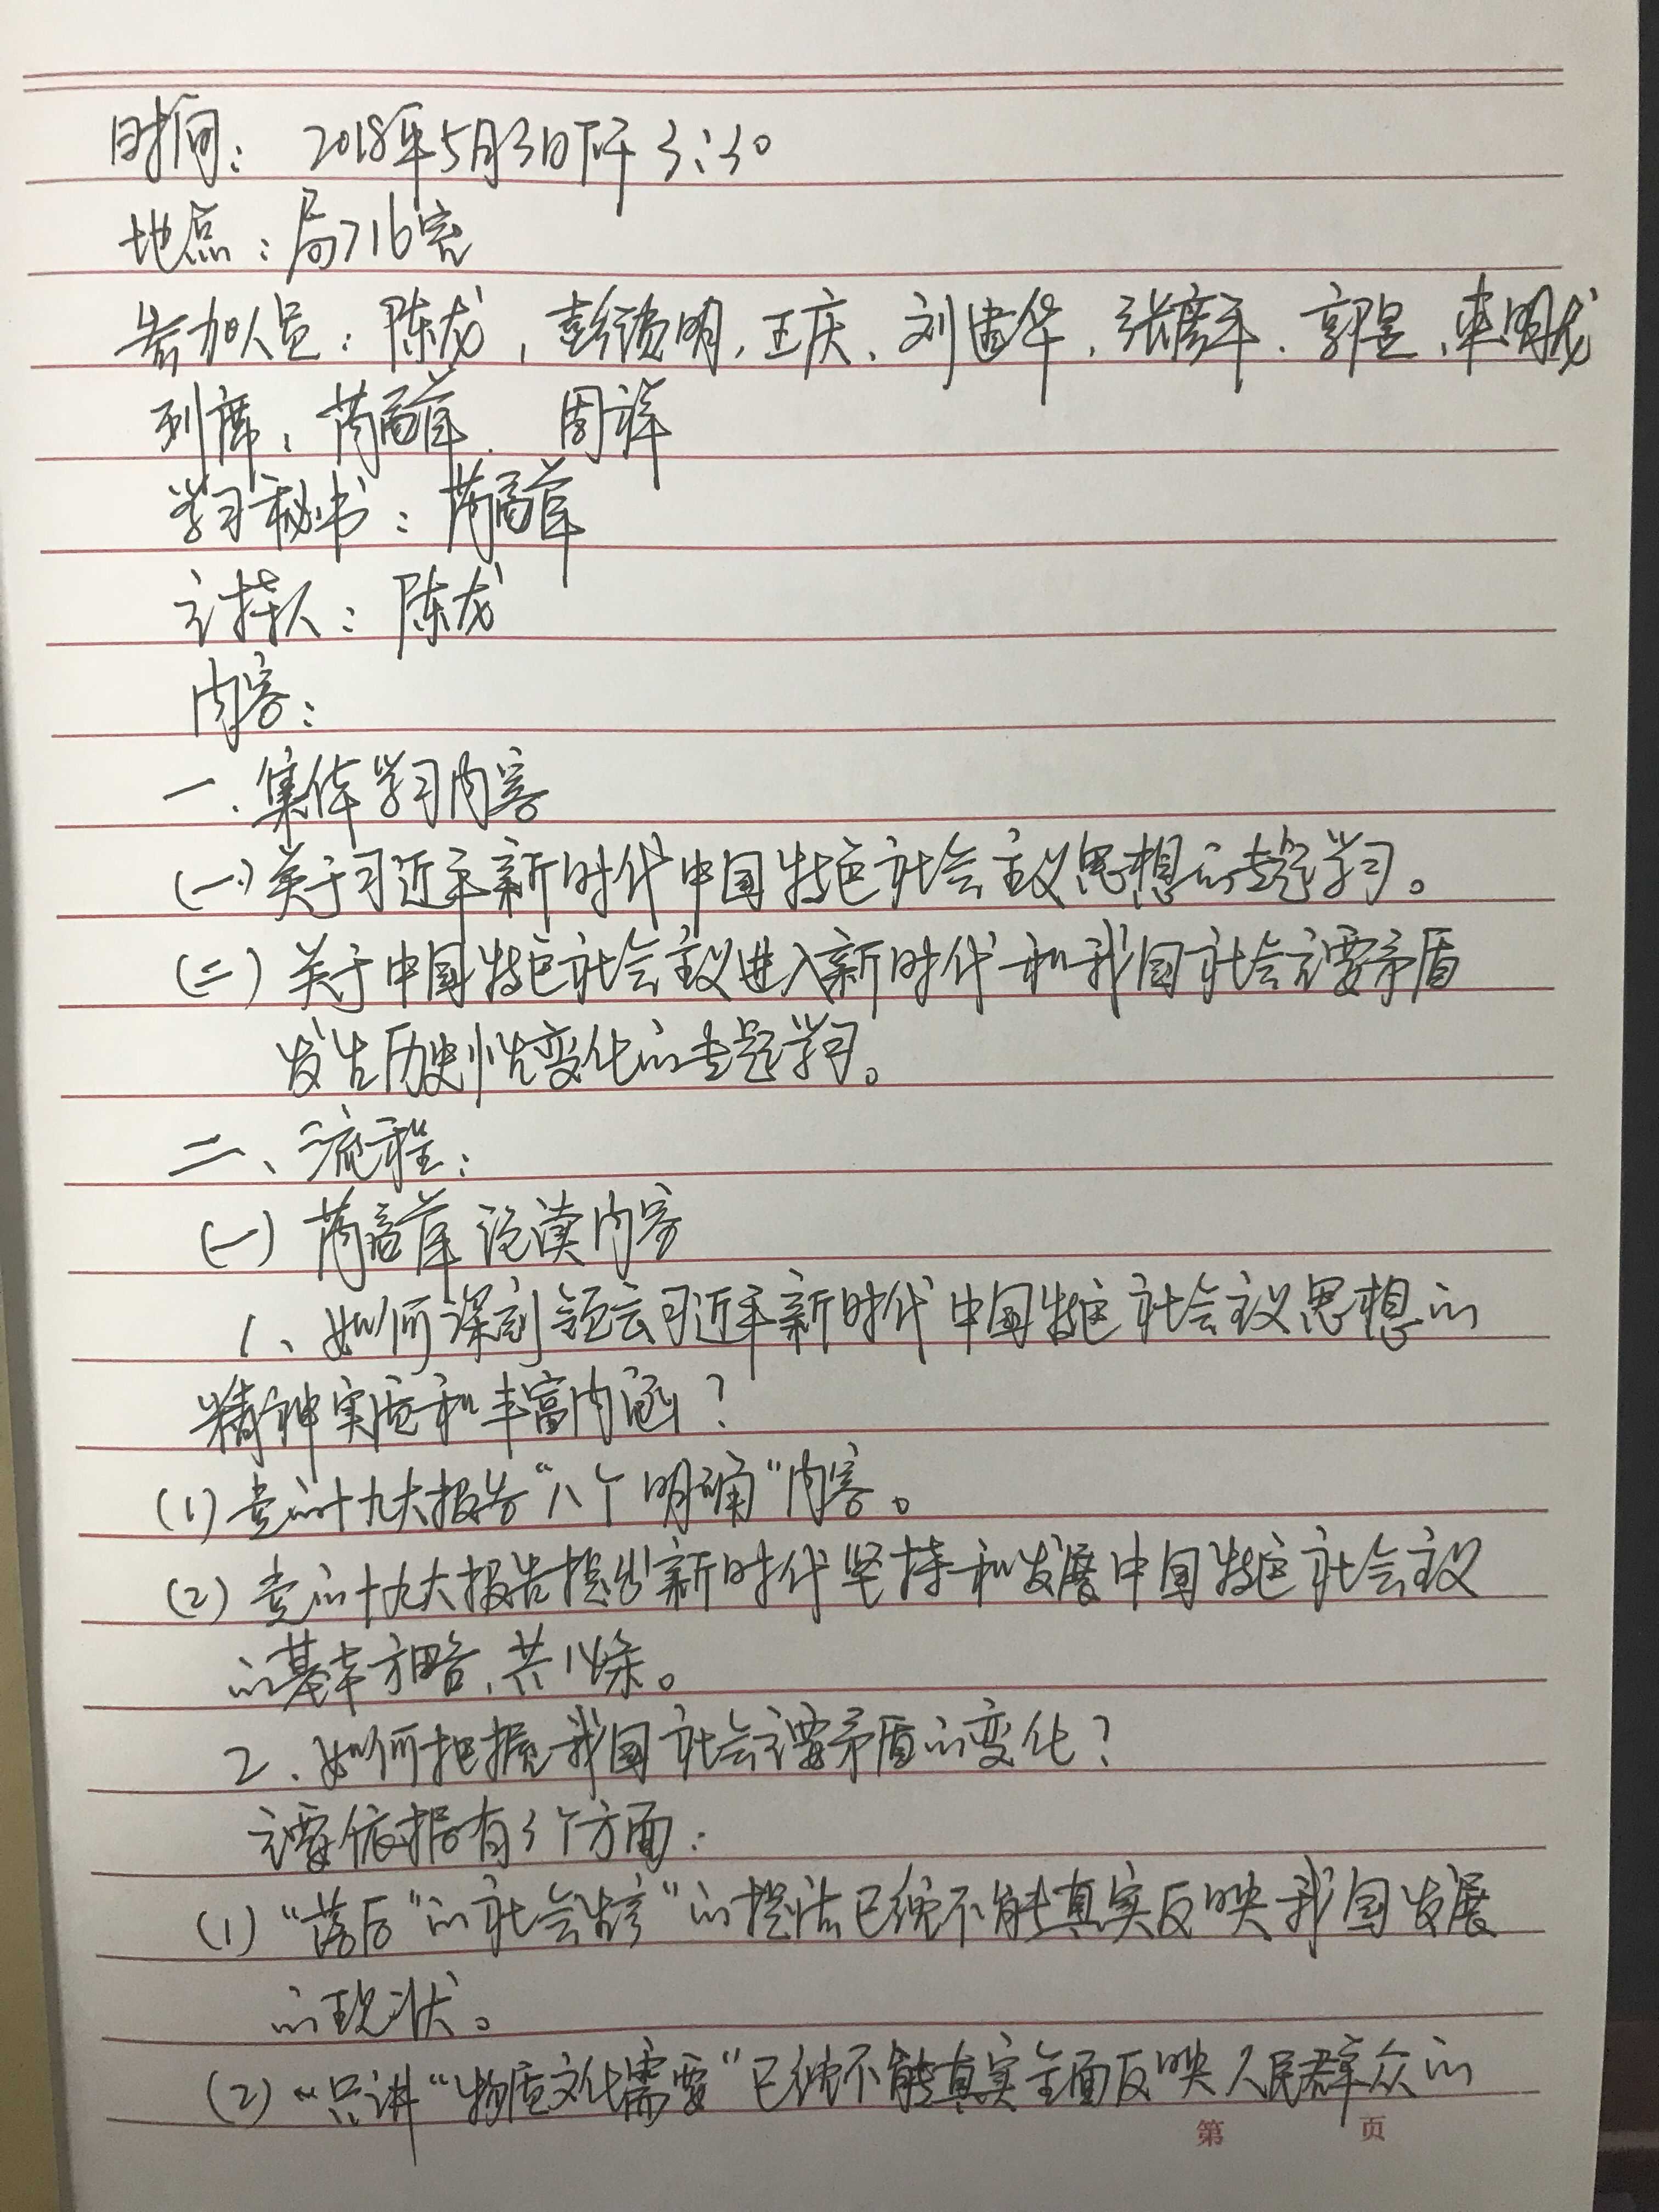 时间： 2018年5月3日下午 3:30
地点：局716室
参加人员：陈龙，彭德明，王庆、刘建华，张彦平．郭昱、车明龙
列席： 周祥
学习秘书：
主持人：陈龙
内容：
一、集体学习内容
(一)关于习近平新时代中国特色社会主义思想的专题学习。
(二)关于中国特色社会主义进入新时代和我国社会主要矛盾
发生历史性变化的专题学习。
二、流程：
(一) 论读内容
1、如何深刻领会习近平新时代中国特色社会主义思想的
精神实质和丰富内涵？
(1)党的十九大报告“八个明确”内容。
(2)党的十九大报告提出新时代坚持和发展中国特色社会主义
的基本方略，共14条。
2、如何把握我国社会主要矛盾的变化？
主要依据有3个方面：
(1)“落后”的社会生产”的提法已经不能真实反映我国发展
的现状。
(2)“只讲“物质文化需要”已经不能真实全面反映人民群众的
第 页